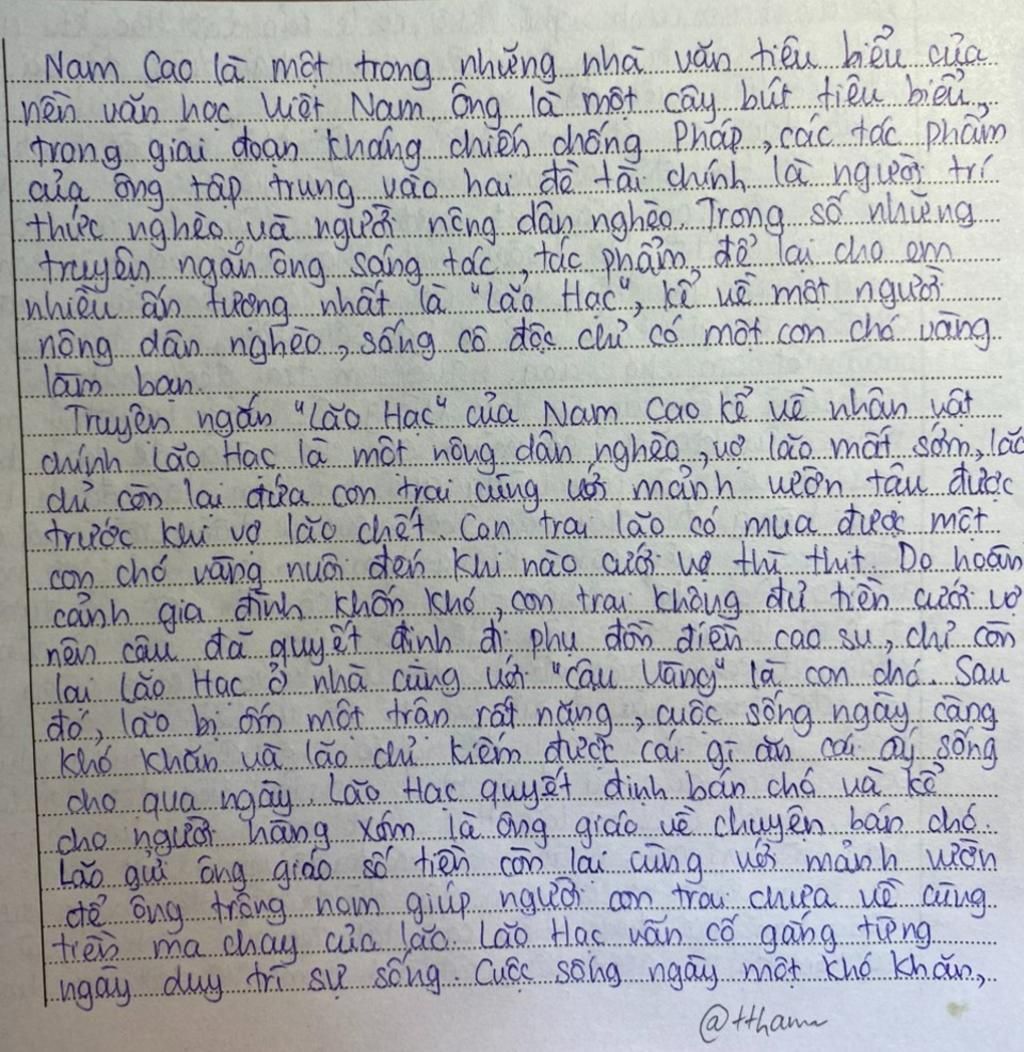 Nam Cao là một trong những nhà văn tiêu biểu của
nền văn học Việt Nam. Ông là một cây bút tiêu biểu,
trong giai đoạn kháng chiến chống Pháp, các tác phẩm
của ông tập trung vào hai đề tài chính là người trí
thức nghèo và người nông dân nghèo. Trong số những
truyện ngắn ông sáng tác, tác phẩm để lại cho em
nhiều ấn tượng nhất là "Lão Hạc", kể về một người
nông dân nghèo, sống cô độc chỉ có một con chó vàng
làm bạn.
Truyện ngắn "Lão Hạc" của Nam Cao kể về nhân vật
chính Lão Hạc là một nông dân nghèo, vợ lão mất sớm, lão
chỉ còn lại đứa con trai cùng với mảnh vườn tậu được
trước khi vợ lão chết. Con trai lão có mua được một
con chó vàng nuôi đến khi nào cưới vợ thì thịt. Do hoàn
cảnh gia đình khốn khó, con trai không đủ tiền cưới vợ
nên cậu đã quyết định đi phu đồn điền cao su, chỉ còn
lại Lão Hạc ở nhà cùng với "Cậu Vàng" là con chó. Sau
đó, lão bị ốm một trận rất nặng, cuộc sống ngày càng
khó khăn và lão chỉ kiếm được cái gì ăn cái ấy sống
cho qua ngày. Lão Hạc quyết định bán chó và kể
cho người hàng xóm là ông giáo về chuyện bán chó.
Lão gửi ông giáo số tiền còn lại cùng với mảnh vườn
để ông trông nom giúp người con trai chưa về cùng
tiền ma chay của lão. Lão Hạc vẫn cố gắng từng
ngày duy trì sự sống. Cuộc sống ngày một khó khăn,
@ttham